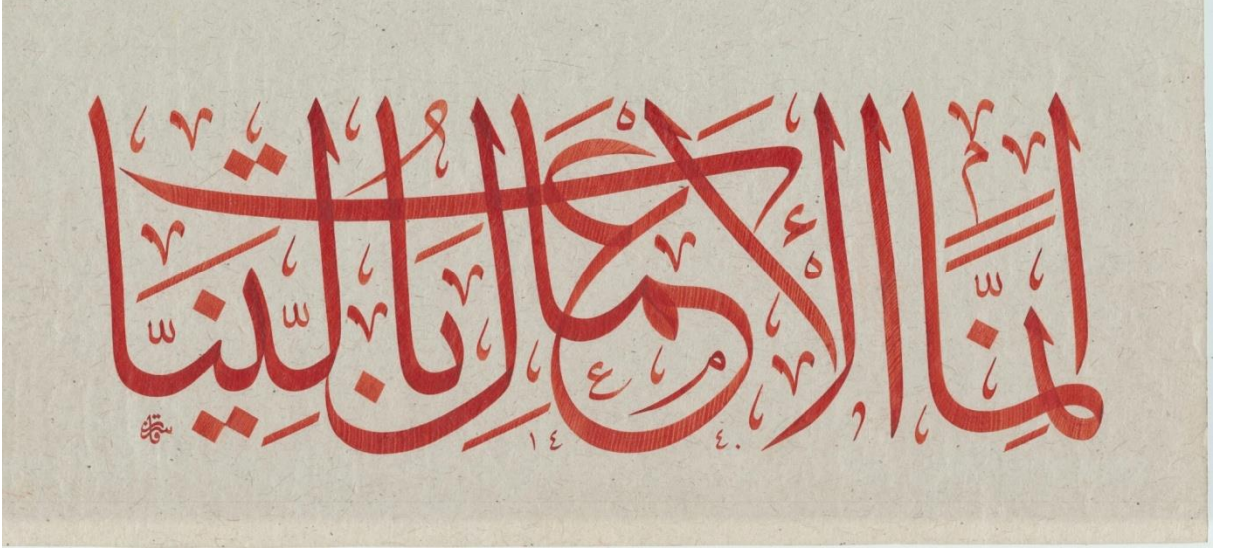 إِنَّمَا الأَعْمَالُ بِالنِّيَّاتِ
١٤٤٠